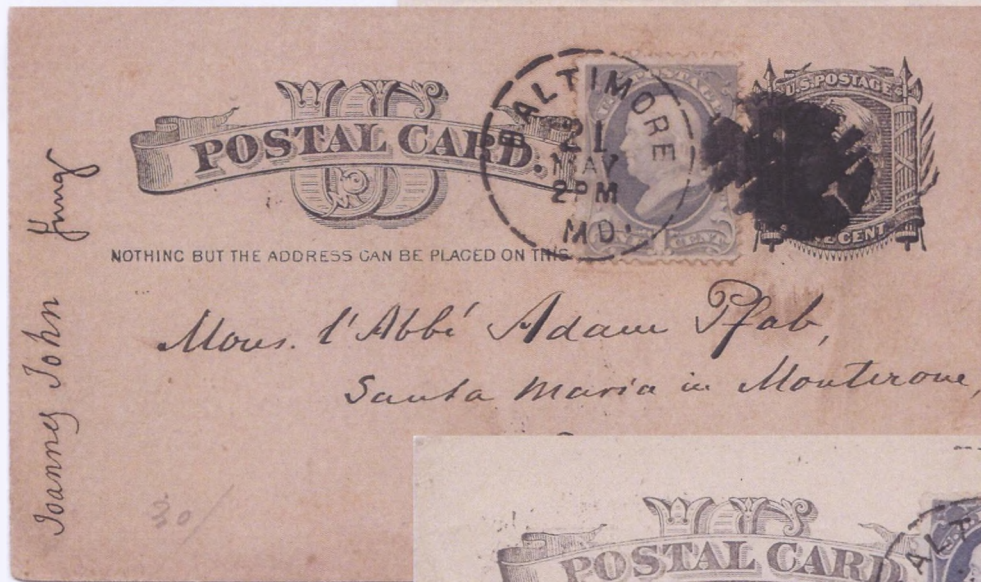 POSTAL CARD.
U.S. POSTAGE
BALTIMORE
21
MAY
2PM
MD.
POSTAGE
ONE 1 CENT
ONE CENT
NOTHING BUT THE ADDRESS CAN BE PLACED ON THIS
Mons. l'Abbé Adam Pfab,
Santa Maria in Monterone,
Joannes John
30/
POSTAL CARD
ALT